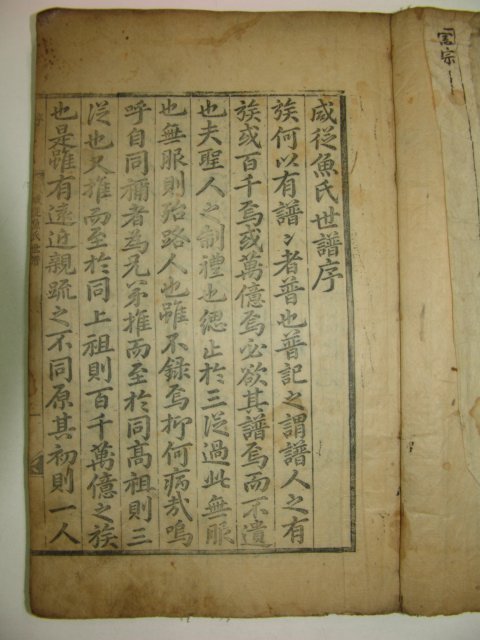 咸從魚氏世譜序
族何以有譜〻者普也普記之謂譜人之有
族或百千焉或萬億焉必欲其譜焉而不遺
也夫聖人之制禮也緦止於三從過此無服
也無服則殆路人也雖不録焉抑何病哉嗚
呼自同禰者為兄弟推而至於同高祖則三
從也又推而至於同上祖則百千萬億之族
也是雖有遠近親疏之不同原其初則一人
魚氏世譜
宗